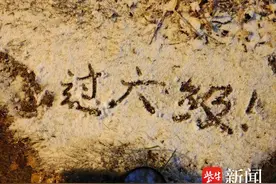 过六级!
紫牛新闻